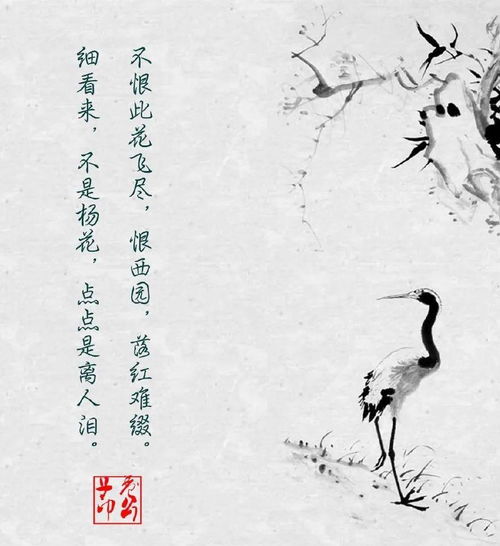 不恨此花飞尽，恨西园，落红难缀。
细看来，不是杨花，点点是离人泪。